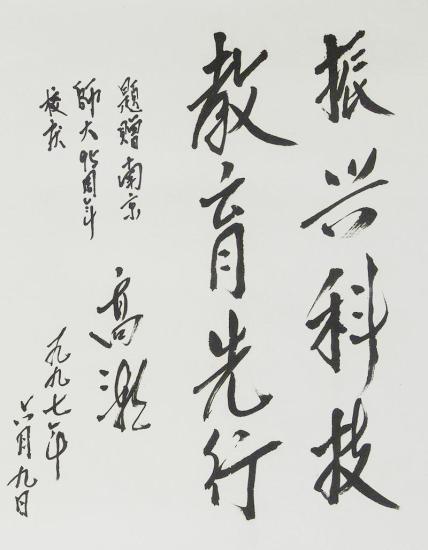 振兴科技
教育先行
题赠南京
師大95周年
校庆
高潮
一九九七年
六月九日